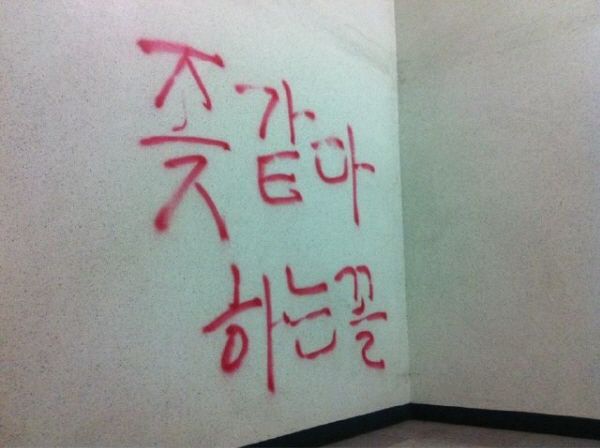 좃같다
하는꼴